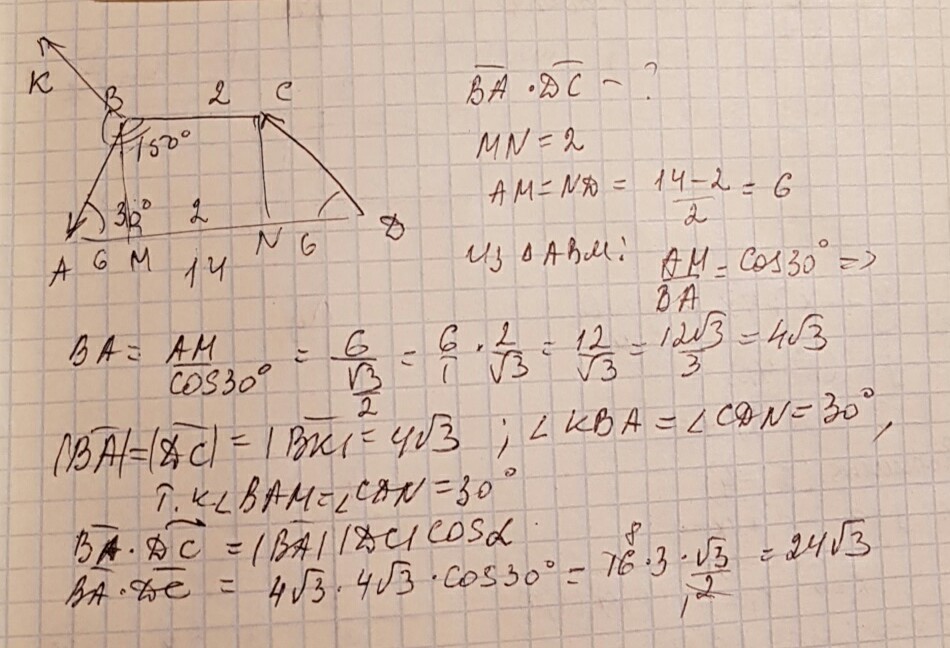 K
B 2 C
150°
30° 2
A 6 M 14 N 6 D
BA · DC - ?
MN = 2
AM = ND = (14-2)/2 = 6
Из ΔABM: AM/BA = cos30° =>
BA = AM/cos30° = 6/(√3/2) = 6/1 · 2/√3 = 12/√3 = 12√3/3 = 4√3
|BA| = |DC| = |BK| = 4√3 ; ∠KBA = ∠CDN = 30°,
т.к ∠BAM = ∠CDN = 30°
BA · DC = |BA| |DC| cosα
BA · DC = 4√3 · 4√3 · cos30° = 16 8 · 3 · √3/2 1 = 24√3